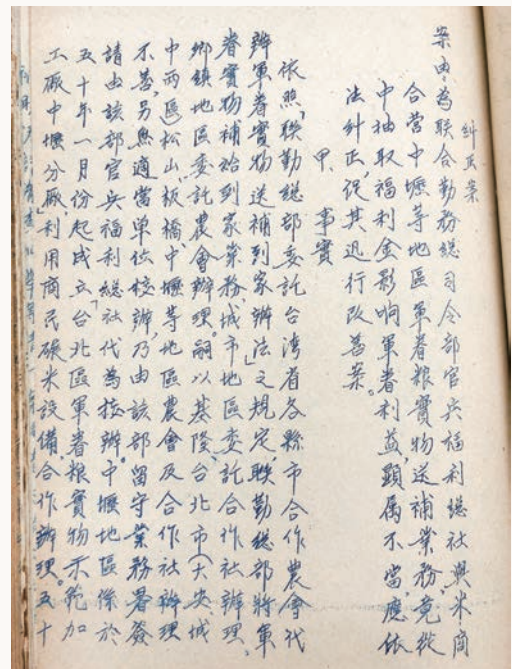 糾正案
案由：為聯合勤務總司令部官兵福利總社與米商
合營中壢等地區軍眷粮實物送補業務，竟從
中抽取福利金影响軍眷利益，顯属不當，應依
法糾正，促其迅行改善案。
甲、事實
依照「聯勤總部委託台湾省各縣市合作農會代
辦軍眷實物送補到家辦法」之規定，聯勤總部將軍
眷實物補給到家業務，城市地區委託合作社辦理，
鄉鎮地區委託農會辦理。嗣以基隆、台北市（大安、城
中兩區）松山、板橋、中壢等地區農會及合作社辦理
不善，另無適當单位接辦，乃由該部留守業務署簽
請由該部官兵福利總社代為接辦。中壢地區係於
五十年一月份起成立「台北區軍眷粮實物示範加
工廠中壢分廠」，利用商民碾米設備合作辦理。五十